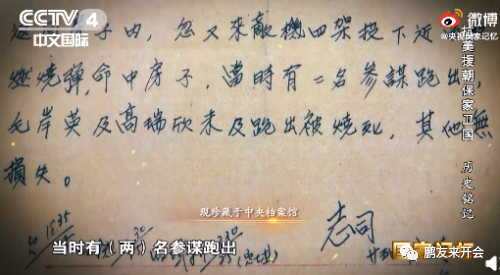 CCTV 4
中文国际
微博
@央视国家记忆
抗美援朝保家卫国 历史铭记
子内，忽又来敵機四架投下近
燃燒弹，命中房子，當時有二名参謀跑出，
毛岸英及高瑞欣未及跑出被燒死，其他無
損失。
现珍藏于中央档案馆
志司
当时有（两）名参谋跑出
国家记忆
鹏友来开会